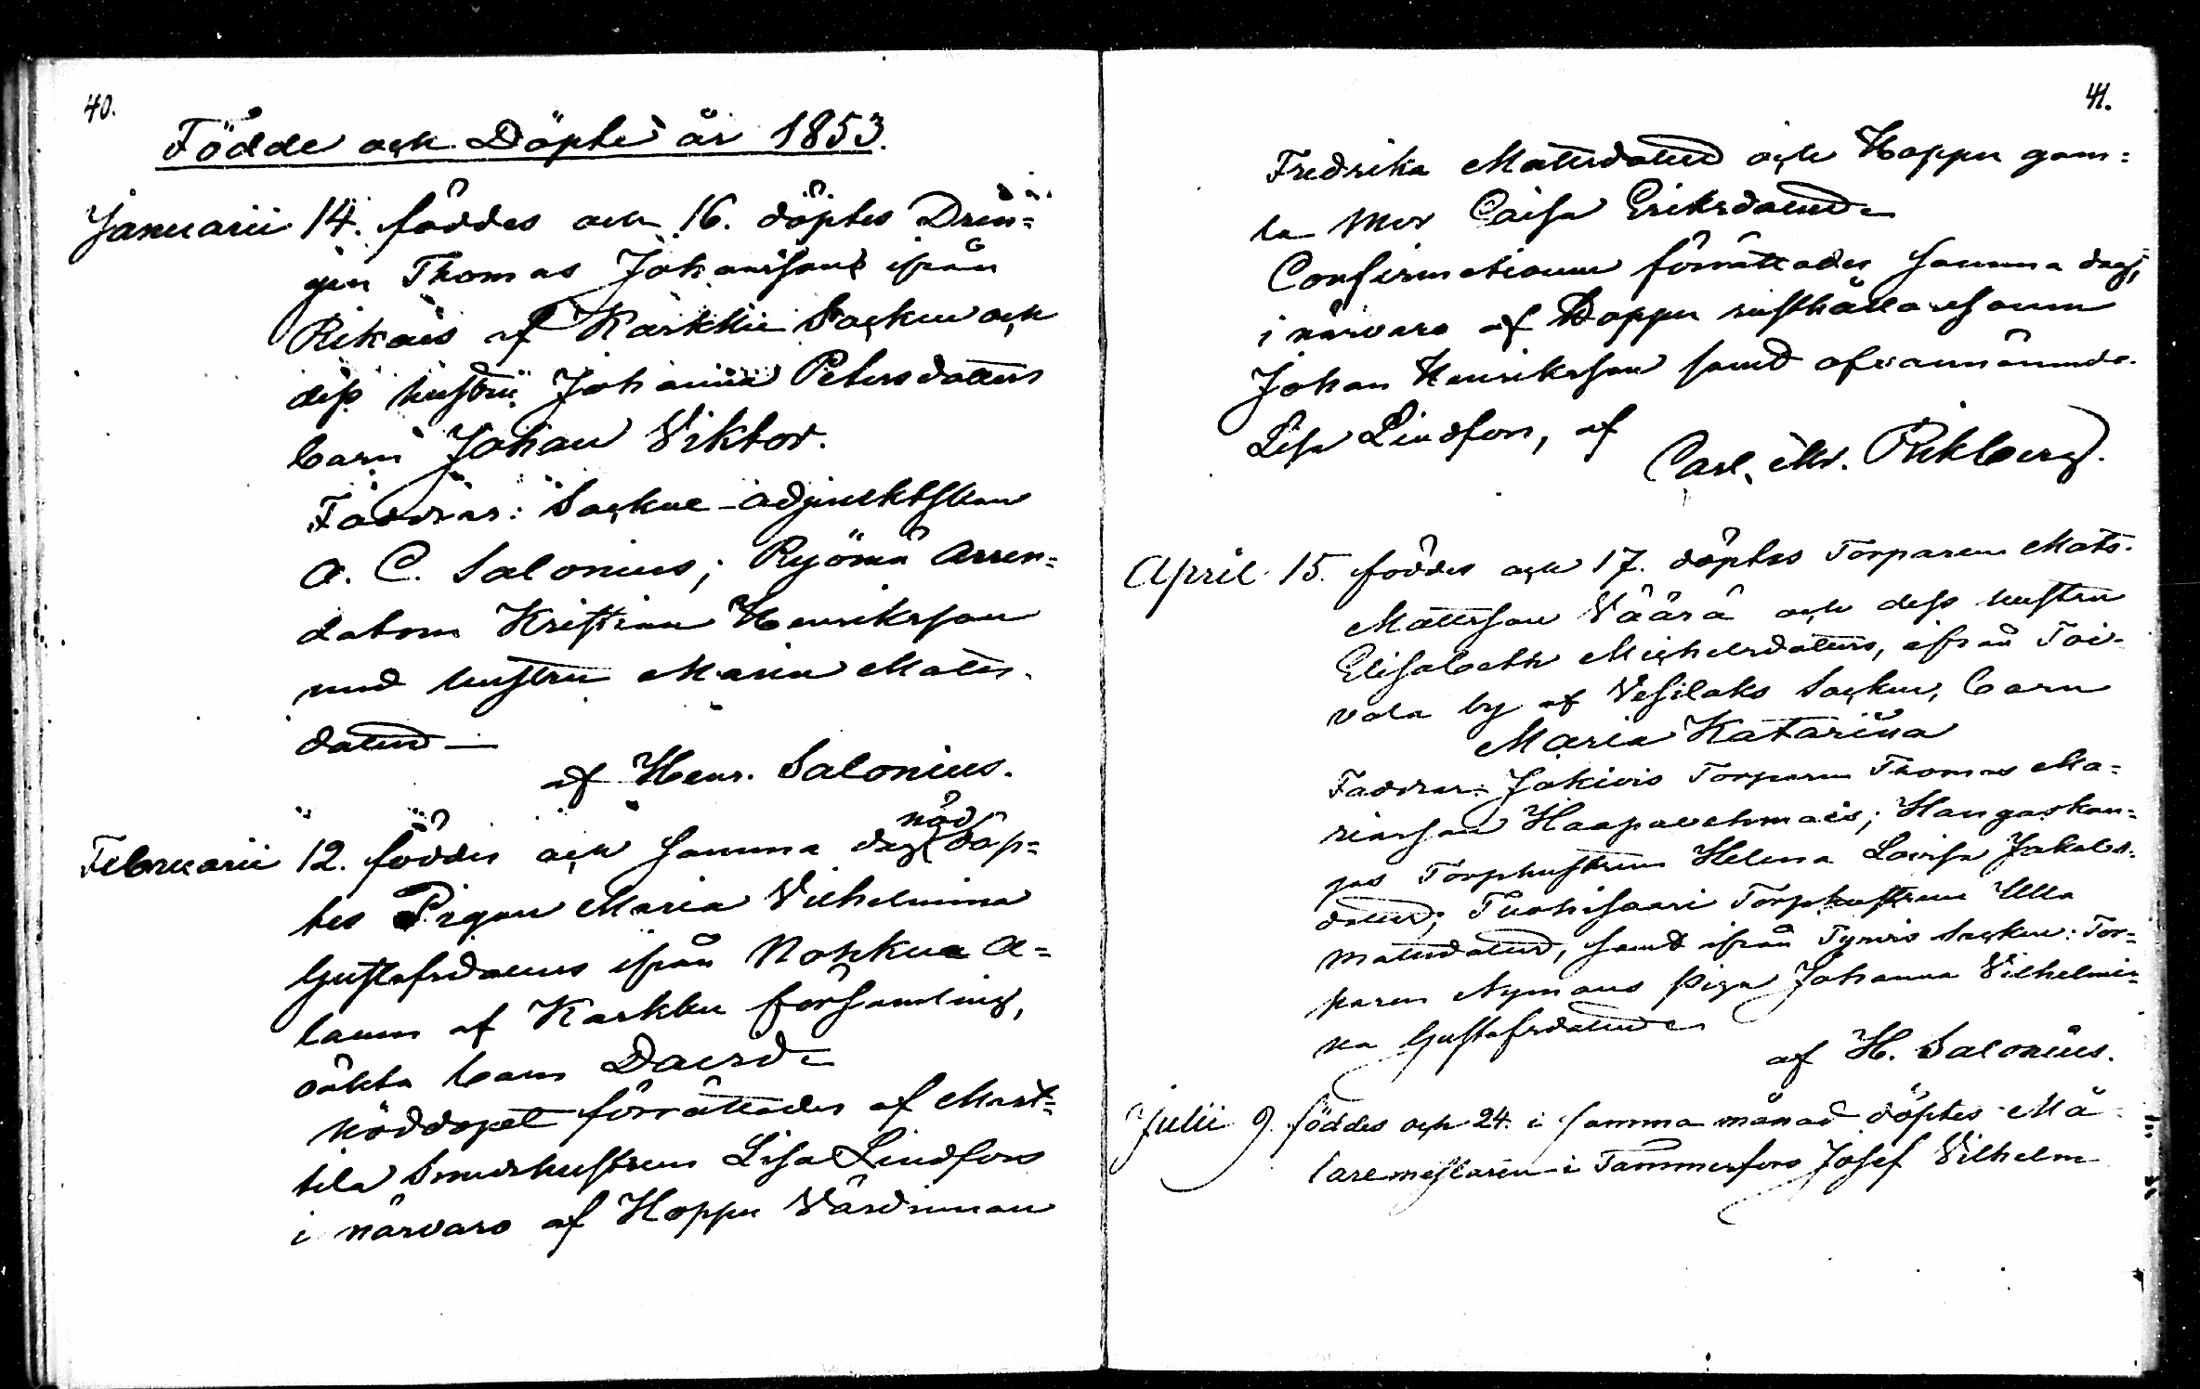 40.
Födde och Döpte år 1853.
Januarii 14. föddes och 16. döptes Drän=
gen Thomas Johanssons ifrån
Rikais af Karkku Socken och
dess hustru Johanna Petersdotters
barn Johan Viktor.
Faddrar: Sockne-adjunktskan
A. C. Salonius; Ryömä Arren=
datorn Kristian Henriksson
med hustru Maria Mats-
dotter
af Henr. Salonius.
Februarii 12. föddes och samma dag nöd döp=
tes Pigan Maria Vilhelmina
Gustafsdotters ifrån Nohkua A=
lanen af Karkku församling,
oäkta barn David
Nöddopet förrättades af Mart=
tila Smedhustrun Lisa Lindfors
i närvaro af Hoppu Värdinnan
41.
Fredrika Matsdotter och Hoppu gam=
la Mor Caisa Eriksdotter
Confirmationen förrättades samma dag,
i närvaro af Hoppu rusthållaresonen
Johan Henriksson samt ofvannämnde
Lisa Lindfors, af
Carl. M. Rikberg.
April 15. föddes och 17. döptes Torparen Mats
Mattsson Väärä och dess hustru
Elisabeth Michelsdotters, ifrån Toi-
vola by af Vesilaks Socken, barn
Maria Katarina
Faddrar: Jokivis Torparen Thomas Ma=
riasson Haapavehmais; Hangaskan=
gas Torphustrun Helena Lovisa Jakobs-
dotter; Tuohisaari Torphustrun Ulla
Matsdotter, samt ifrån Tyrvis Socken: Tor=
paren Nymans Piga Johanna Vilhelmi=
na Gustafsdotter
af H. Salonius.
Julii 9. föddes och 24. i samma månad döptes Må
laremästaren i Tammerfors Josef Vilhelm